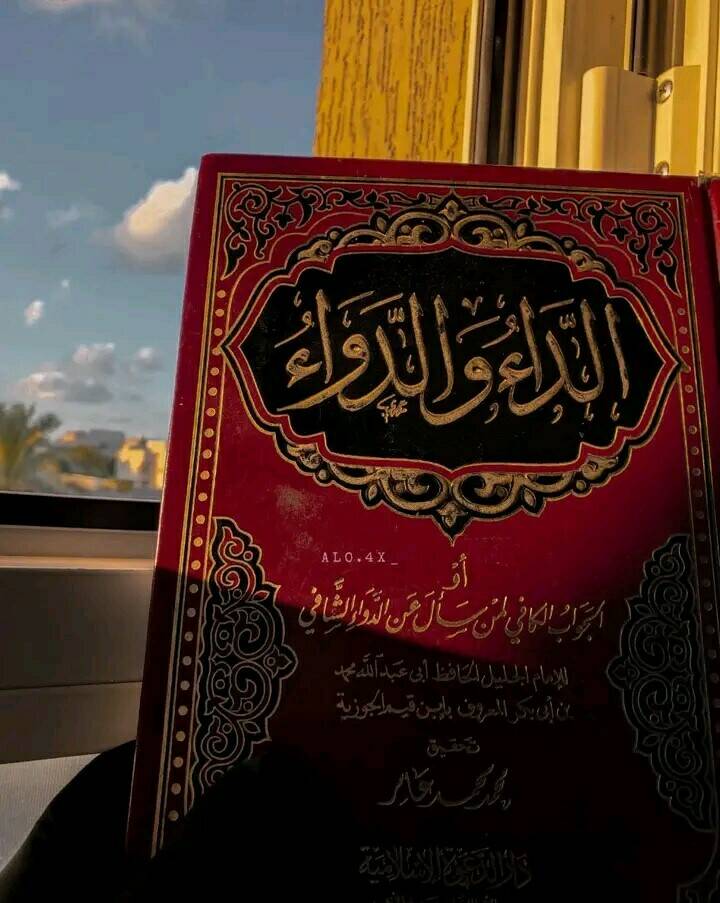 الدَّاءُ وَالدَّوَاءُ
ALO.4X_
أو
الجَوَابُ الكَافي لمَنْ سَأَلَ عَن الدَّوَاءِ الشَّافِي
للإمام الجليل الحافظ أبي عبد الله محمد
بن أبي بكر المعروف بابن قيم الجوزية
تحقيق
محمد محمد عامر
دار الدعوة الإسلامية